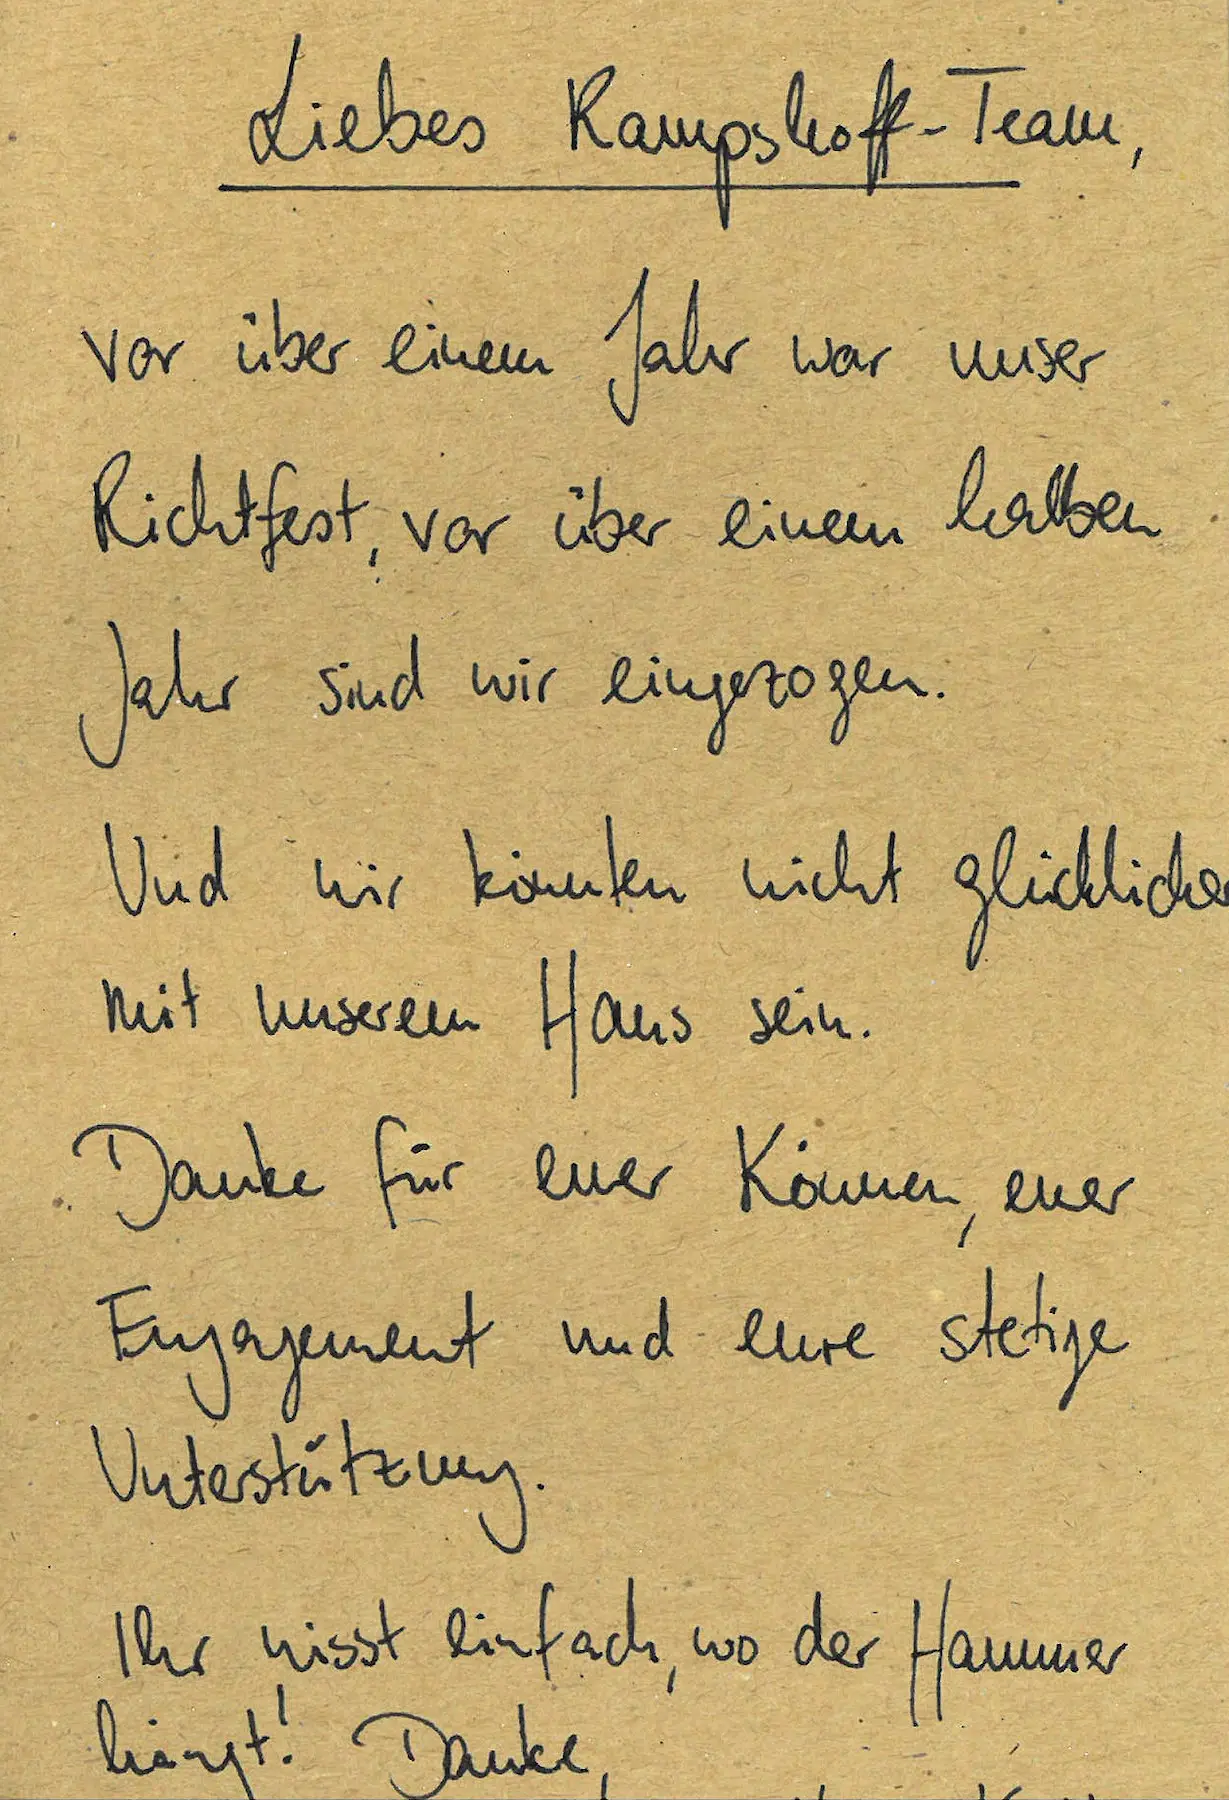 Liebes Kampshoff-Team,
vor über einem Jahr war unser
Richtfest, vor über einem halben
Jahr sind wir eingezogen.
Und wir könnten nicht glücklicher
mit unserem Haus sein.
Danke für euer Können, euer
Engagement und eure stetige
Unterstützung.
Ihr wisst einfach, wo der Hammer
hängt! Danke,